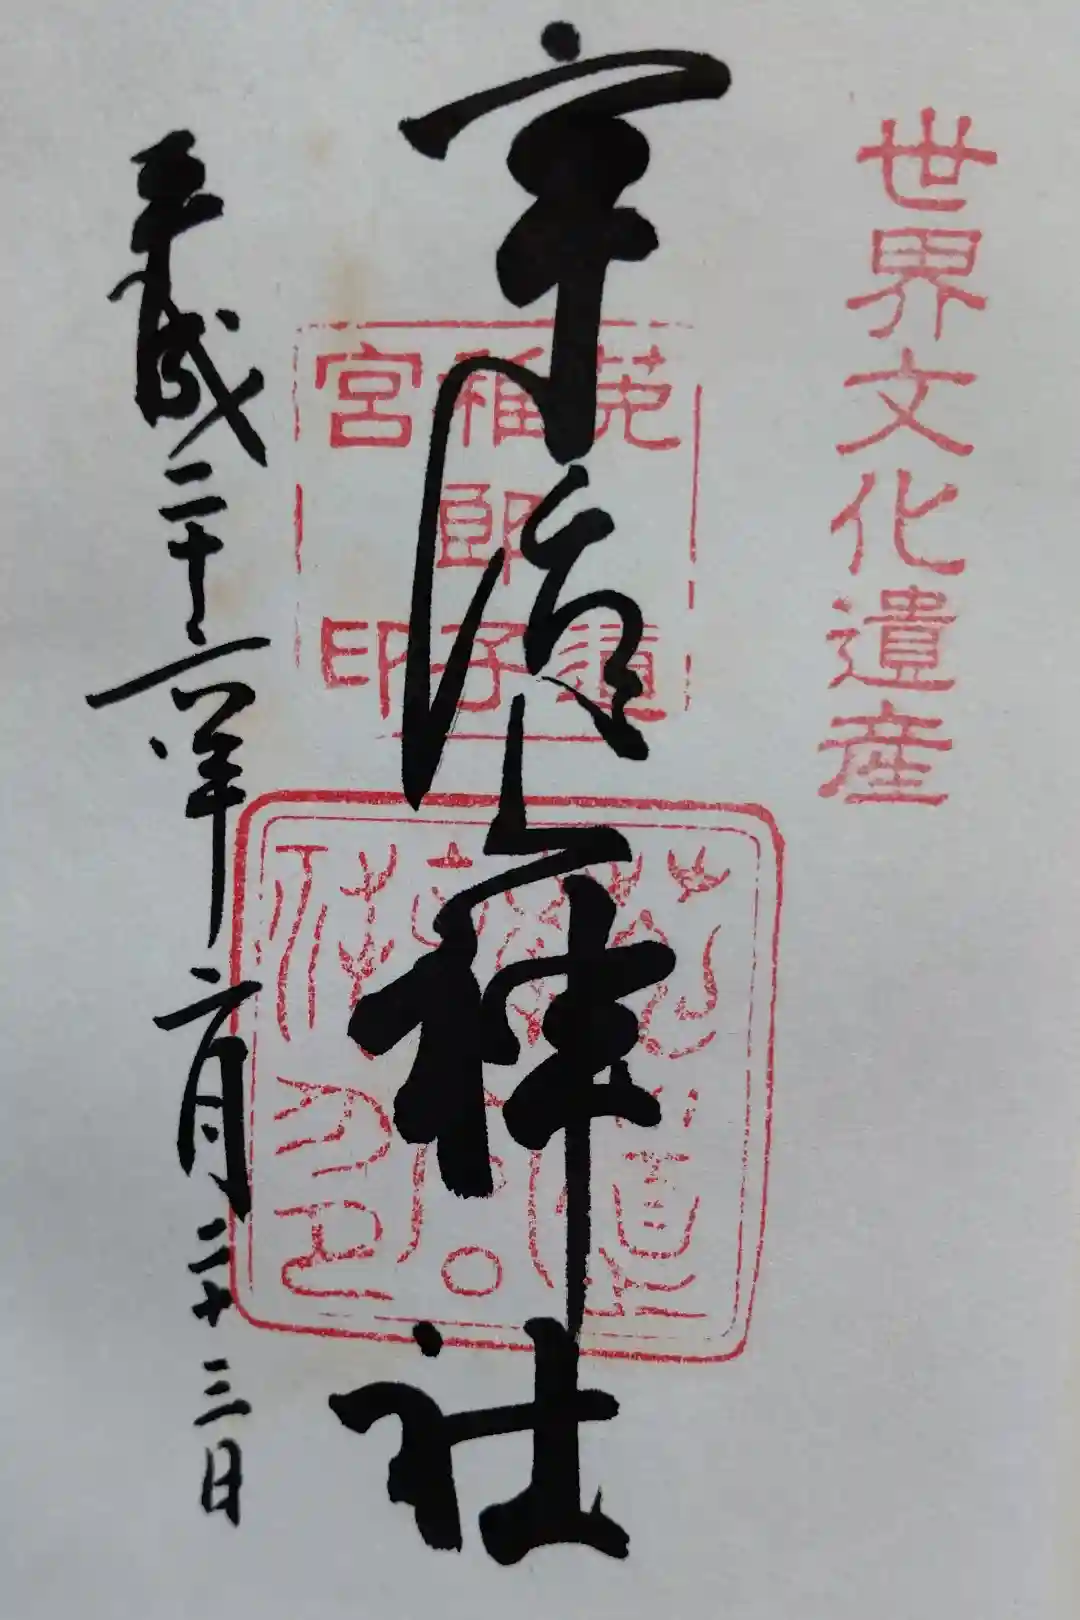 世界文化遺産
菟道
稚郎子
宮印
宇治上神社
平成二十六年 月二十三日